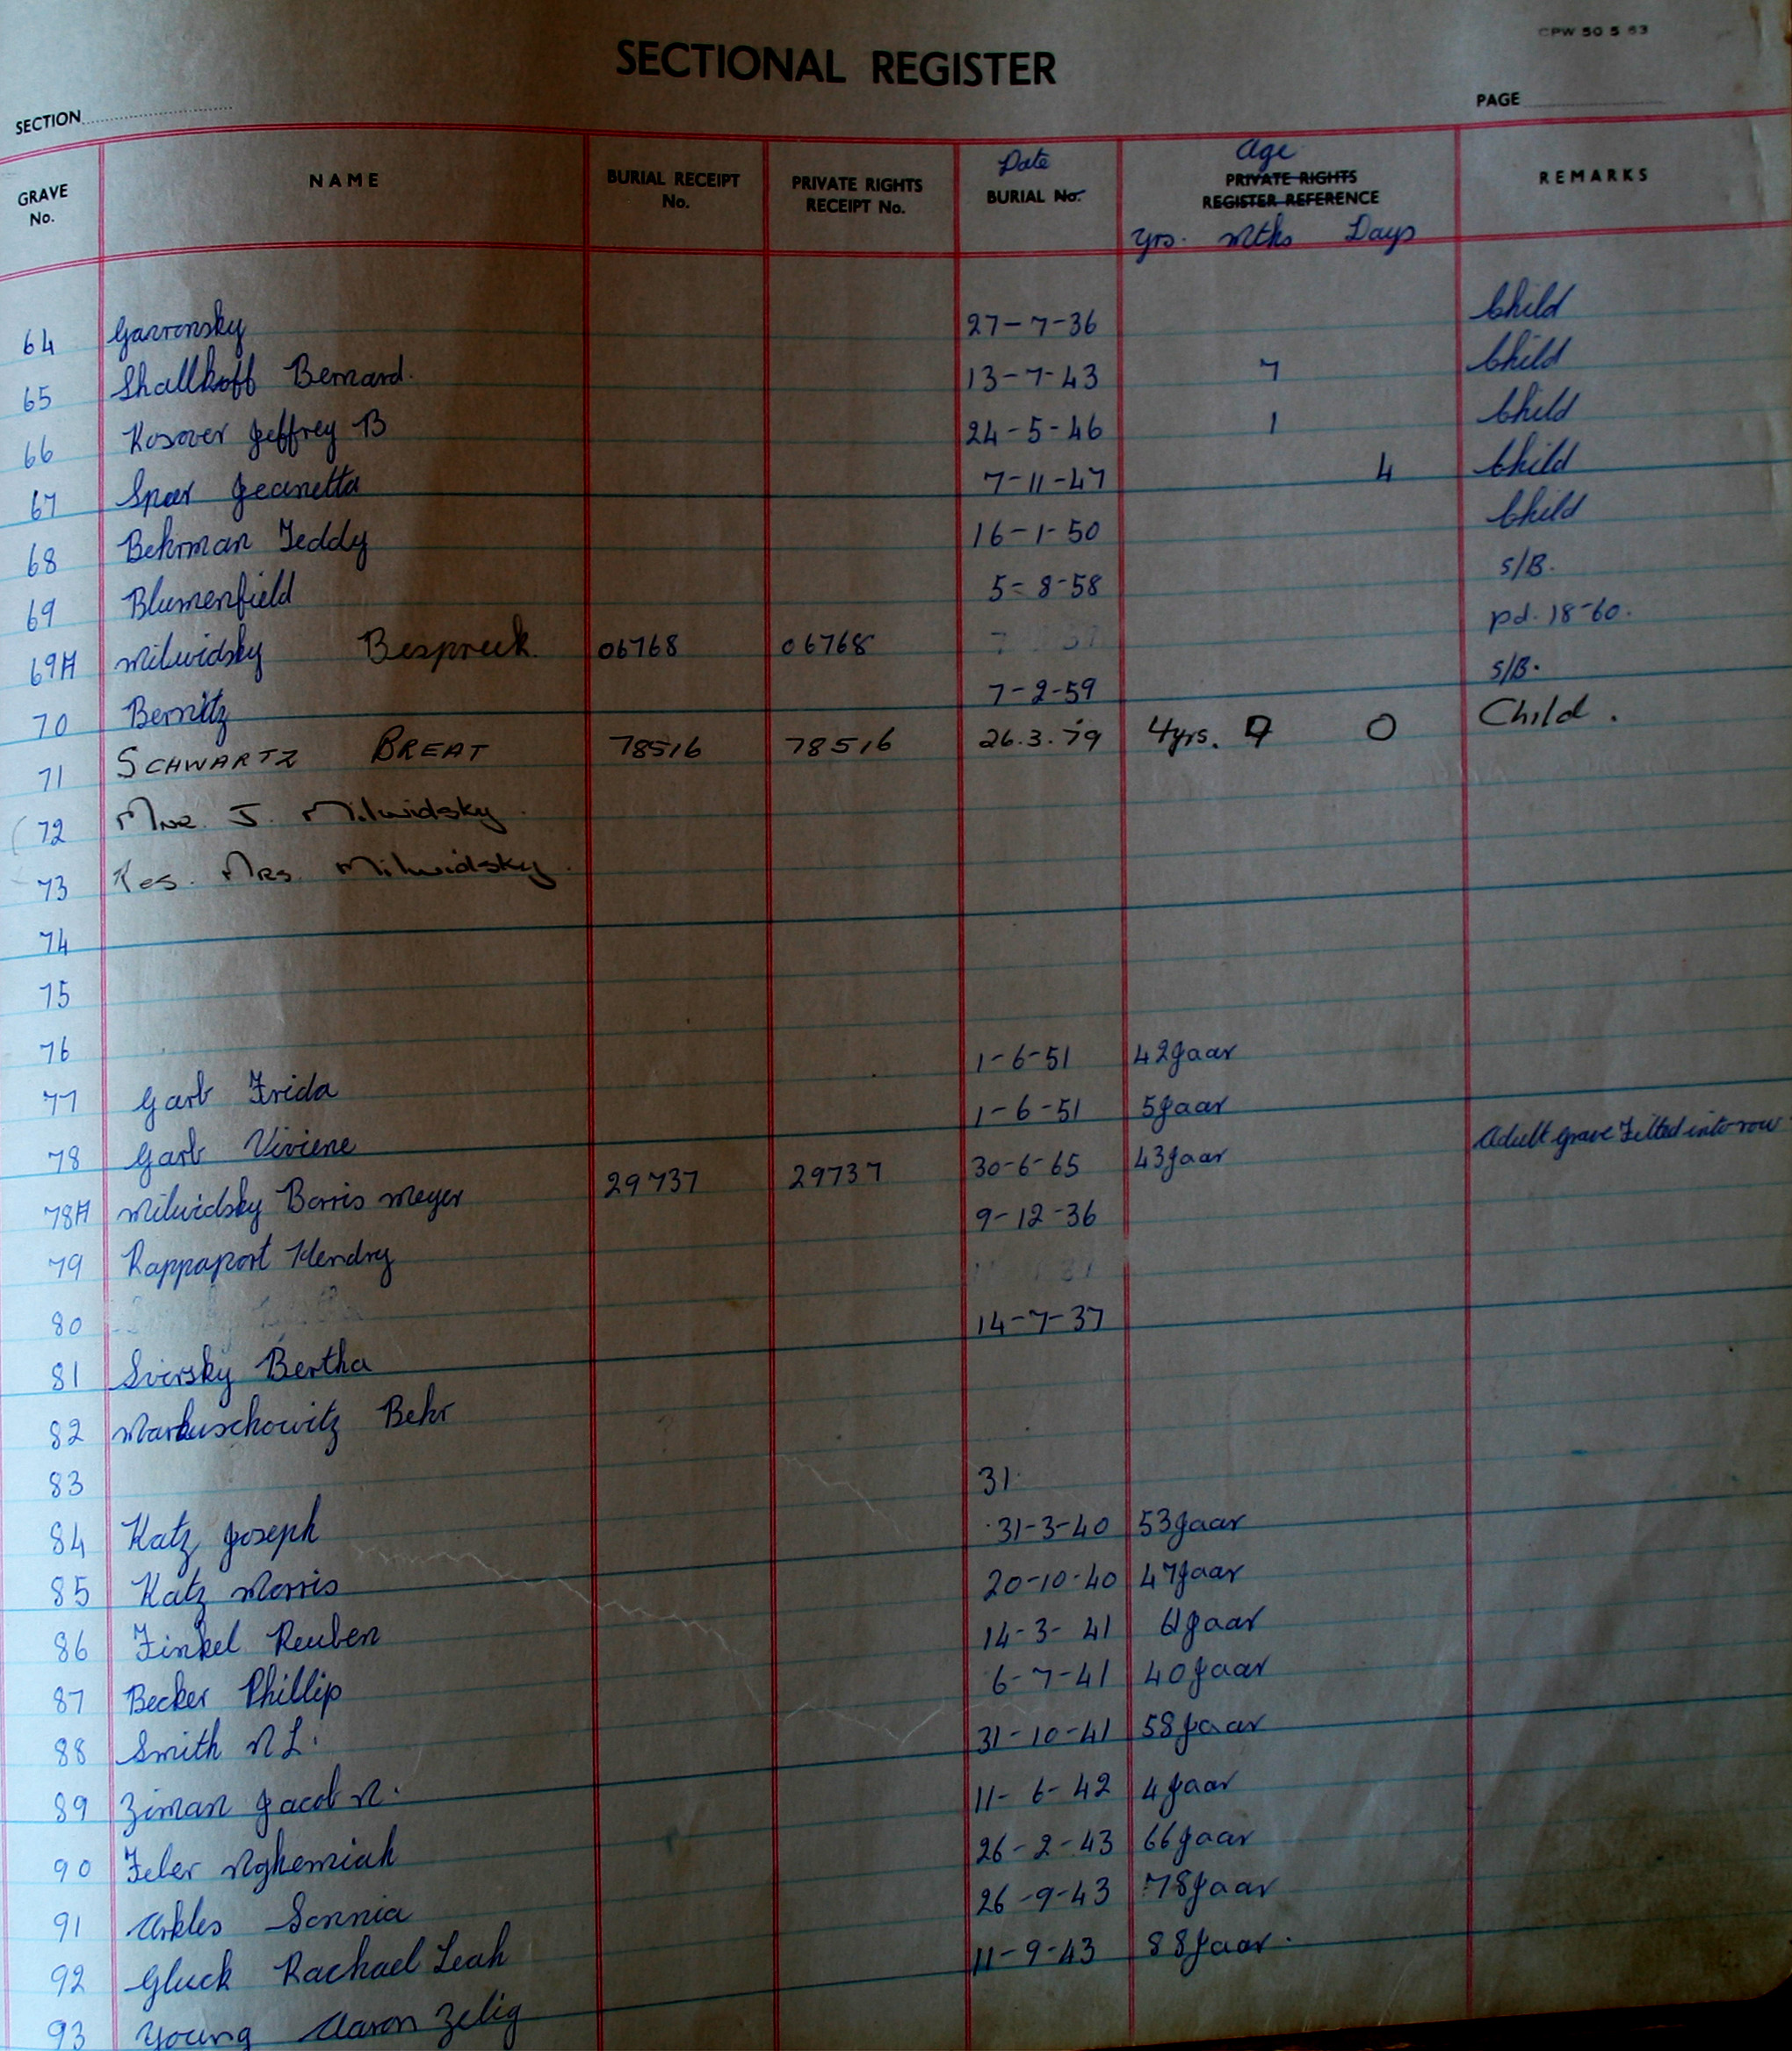 CPW 50 5 63
SECTIONAL REGISTER
SECTION PAGE
GRAVE No. NAME BURIAL RECEIPT No. PRIVATE RIGHTS RECEIPT No. Date BURIAL No. Age PRIVATE RIGHTS REGISTER REFERENCE yrs. mths Days REMARKS
64 Garronsky 27-7-36 Child
65 Shallkoff Bernard. 13-7-43 7 Child
66 Kosover Jeffrey B 24-5-46 1 Child
67 Sper Jeanetta 7-11-47 4 Child
68 Behrman Teddy 16-1-50 Child
69 Blumenfield 5-8-58 S/B.
69A Milwidsky Bespreek 06768 06768 pd. 18-60.
70 Bernitz 7-2-59 S/B.
71 SCHWARTZ BREAT 78516 78516 26.3.79 4yrs. 7 0 Child.
72 Mnr. J. Milwidsky
73 Res. Mrs. Milwidsky.
74
75
76
77 Garb Frida 1-6-51 42 Jaar
78 Garb Viviene 1-6-51 5 Jaar
78A Milwidsky Borris Meyer 29737 29737 30-6-65 43 Jaar Adult grave Fitted into row
79 Rappaport Hendry 9-12-36
80
81 Sviersky Bertha 14-7-37
82 Markuschowitz Behr
83
84 Katz Joseph 31
31-3-40 53 Jaar
85 Katz Morris 20-10-40 47 Jaar
86 Finkel Reuben 14-3-41 61 Jaar
87 Becker Phillip 6-7-41 40 Jaar
88 Smith N L. 31-10-41 58 Jaar
89 Ziman Jacob N. 11-6-42 4 Jaar
90 Feler Nghemiah 26-2-43 66 Jaar
91 Arkles Sonnia 26-9-43 78 Jaar
92 Gluck Rachael Leah 11-9-43 88 Jaar.
93 Young Aaron Zelig